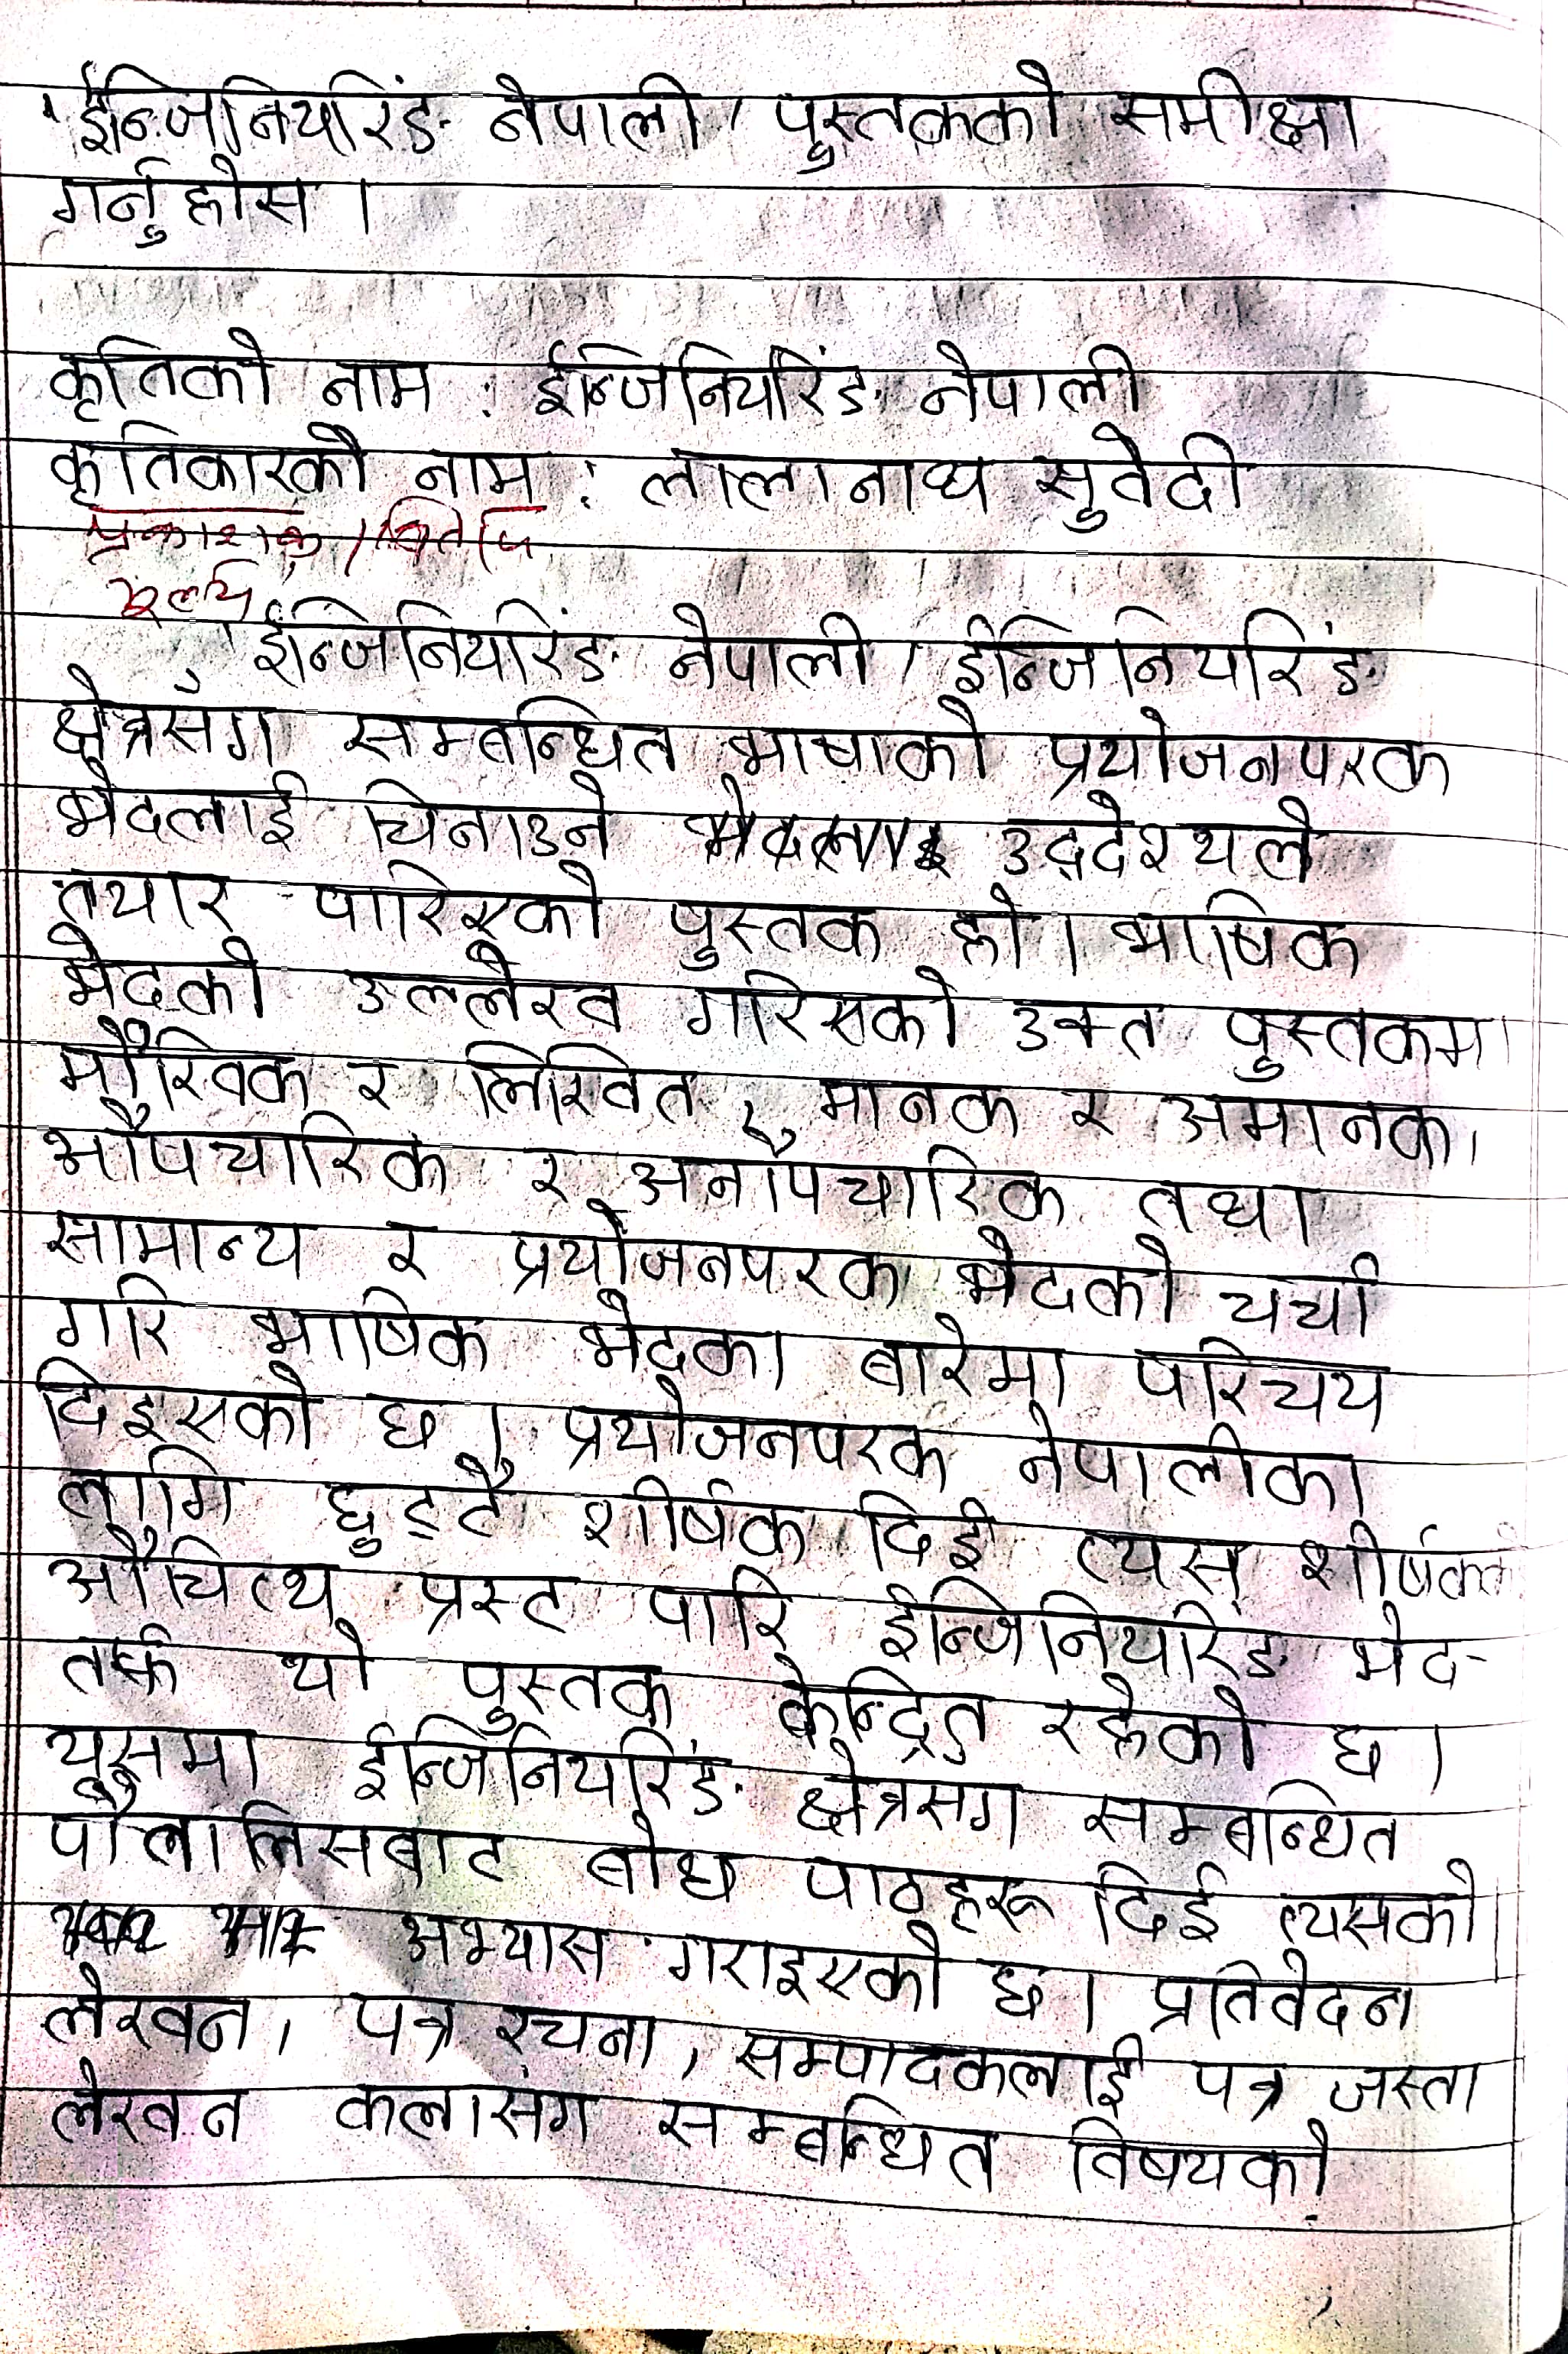 'ईन्जिनियरिङ नेपाली' पुस्तकको समीक्षा
गर्नुहोस ।
कृतिको नाम : ईन्जिनियरिङ नेपाली
कृतिकारको नाम : लालानाथ सुवेदी
प्रकाशक,
मूल्य
'ईन्जिनियरिङ नेपाली' ईन्जिनियरिङ
क्षेत्रसँग सम्बन्धित भाषाको प्रयोजनपरक
भेदलाई चिनाउने उद्देश्यले
तयार पारिएको पुस्तक हो । भाषिक
भेदको उल्लेख गरिएको उक्त पुस्तकमा
मौखिक र लिखित, मानक र अमानक,
औपचारिक र अनौपचारिक तथा
सामान्य र प्रयोजनपरक भेदको चर्चा
गरि भाषिक भेदका बारेमा परिचय
दिइएको छ । प्रयोजनपरक नेपालीका
लागि छुट्टै शीर्षक दिई त्यस शीर्षकको
औचित्य प्रस्ट पारि ईन्जिनियरिङ भेद-
तर्फ यो पुस्तक केन्द्रित रहेको छ ।
यसमा ईन्जिनियरिङ क्षेत्रसग सम्बन्धित
पौलालिसबाट बोध पाठहरू दिई त्यसको
अभ्यास गराइएको छ । प्रतिवेदन
लेखन, पत्र रचना, सम्पादकलाई पत्र जस्ता
लेखन कलासंग सम्बन्धित विषयको